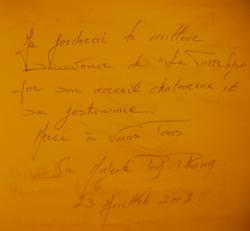 Je garderai le meilleur
souvenir de "La
par son accueil chaleureux et
sa gastronomie.
Merci à Vous Tous
Sa Majesté
23 Juillet 2007.